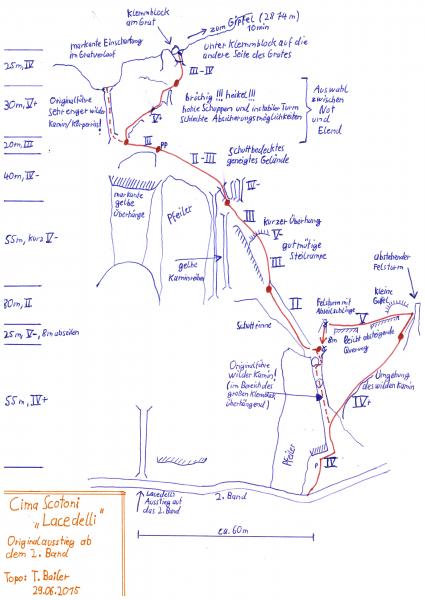 Klemmblock
am Grat
zum Gipfel (2874m)
10min
markante Einschartung
im Gratverlauf
unter Klemmblock auf die
andere Seite des Grates
25m, IV
III-IV
30m, V+
Originalführe
sehr enger wilder
Kamin/Körperriss!
V+
brüchig!!! heikel!!!
hohle Schuppen und instabiler Turm
schlechte Absicherungsmöglichkeiten
Auswahl
zwischen
Not
und
Elend
20m, III
III
PP
II-III
Schuttbedecktes
geneigtes Gelände
40m, IV-
IV-
markante
gelbe
Überhänge
Pfeiler
III
kurzer Überhang
V-
55m, kurz V-
III
gutmütige
Steilrampe
gelbe
Kaminreihe
abstehender
Felsturm
kleine
Gufel
80m, II
II
Felsturm mit
Abseilschlinge
V-
Schuttrinne
25m, V-, 8m abseilen
8m
leicht absteigende
Querung
Originalführe
wilder Kamin!
(im Bereich des
großen Klemmblock
überhängend)
Umgehung
des wilden Kamin
IV+
55m, IV+
Pfeiler
P
IV
Lacedelli
Ausstieg auf
das 2. Band
2. Band
ca. 60m
Cima Scotoni
"Lacedelli"
Originalausstieg ab
dem 2. Band
Topo: T. Bailer
29.06.2015